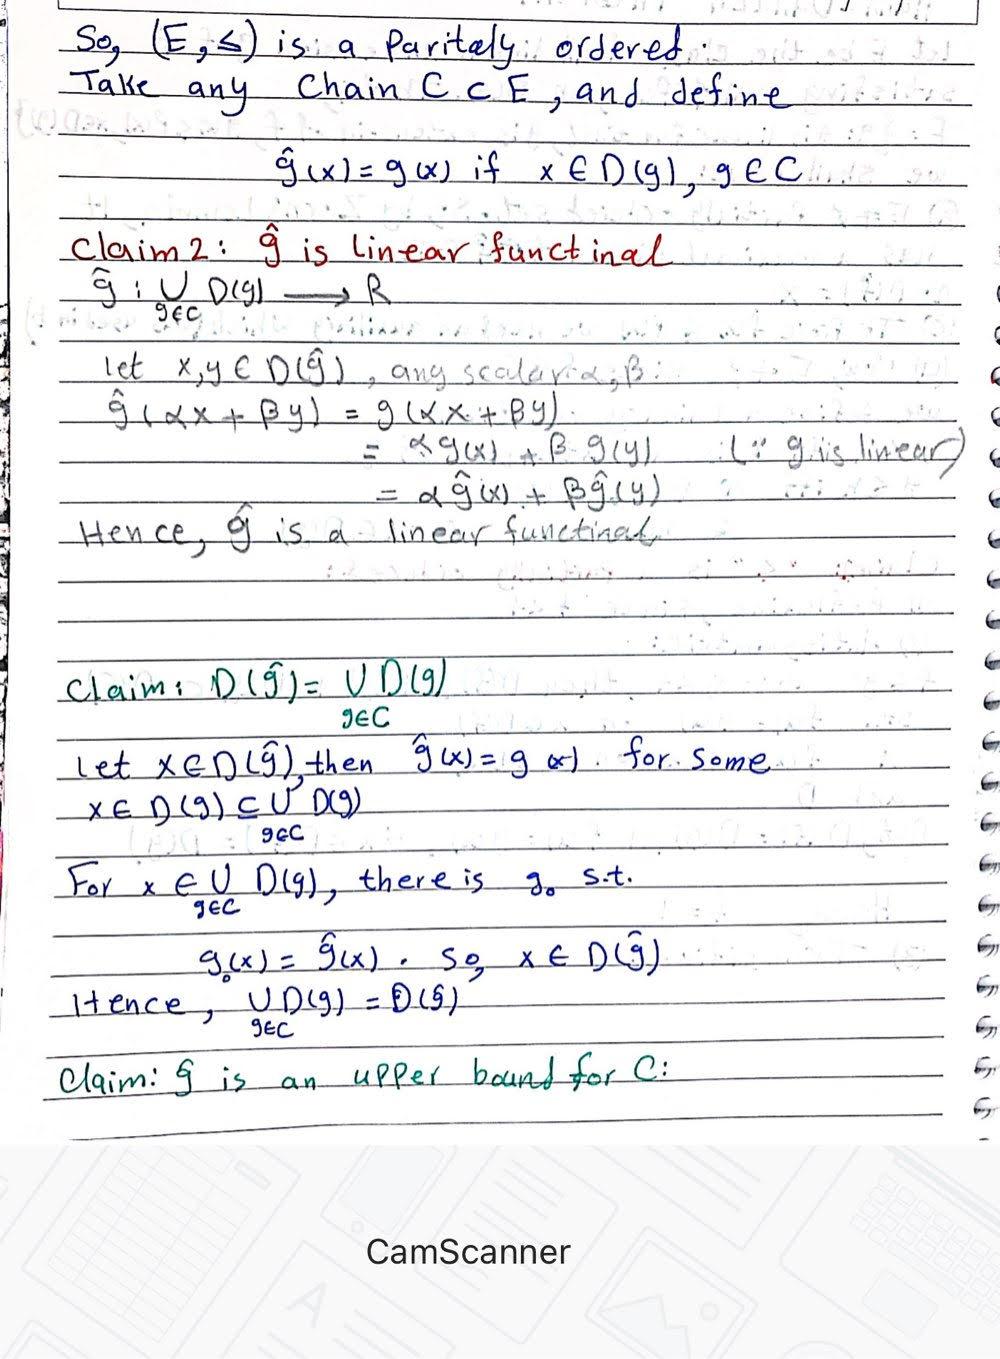 So, (E, ≤) is a Paritaly ordered.
Take any Chain C ⊂ E, and define
ĝ(x) = g(x) if x ∈ D(g), g ∈ C
Claim 2: ĝ is linear functinal
ĝ : ∪ D(g) ⟶ R
g∈C
let x,y ∈ D(ĝ), any scalar α, β:
ĝ(αx + βy) = g(αx + βy)
= αg(x) + β g(y) (∵ g is linear)
= α ĝ(x) + βĝ(y)
Hence, ĝ is a linear functinal
Claim: D(ĝ) = ∪ D(g)
g∈C
Let x∈D(ĝ), then ĝ(x) = g(x). for some
x ∈ D(g) ⊆ ∪ D(g)
g∈C
For x ∈ ∪ D(g), there is g₀ s.t.
g∈C
g₀(x) = ĝ(x). So, x ∈ D(ĝ)
Hence, ∪ D(g) = D(ĝ)
g∈C
Claim: ĝ is an upper bound for C:
CamScanner